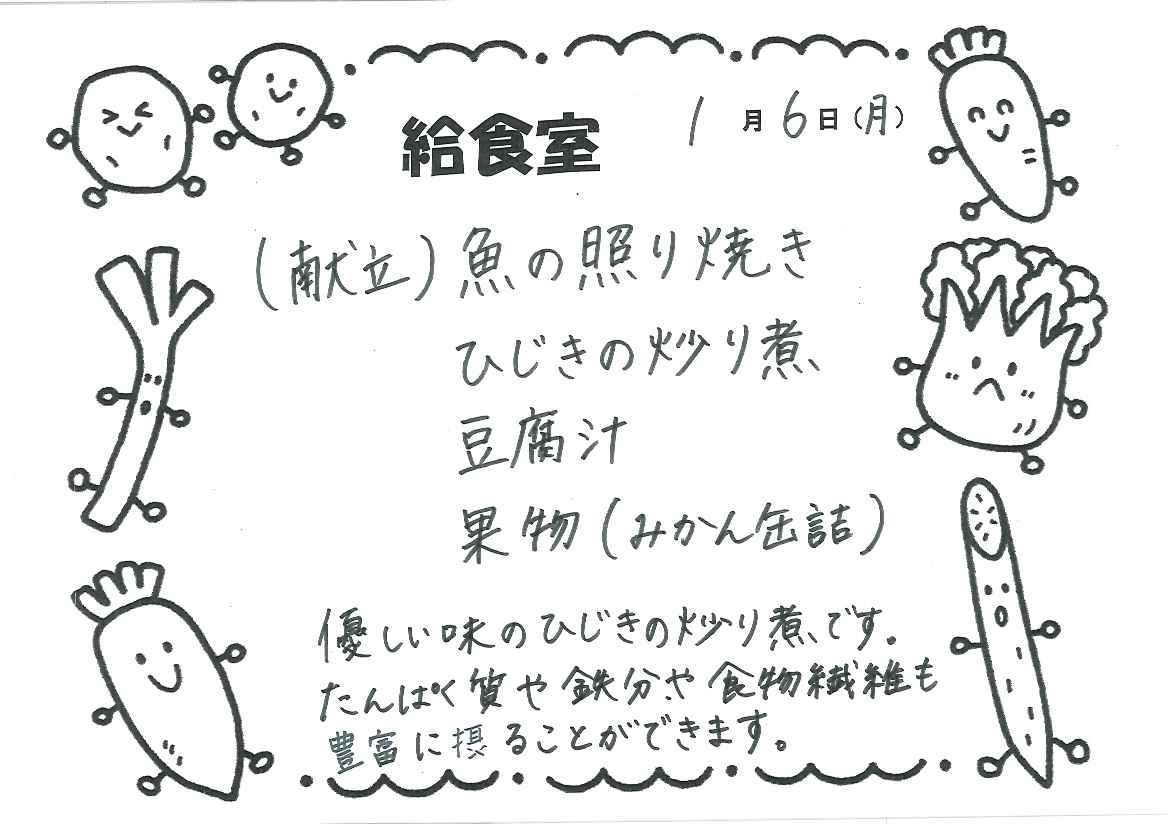 給食室 1月6日(月)
(献立)魚の照り焼き
ひじきの炒り煮
豆腐汁
果物(みかん缶詰)
優しい味のひじきの炒り煮です。
たんぱく質や鉄分や食物繊維も
豊富に摂ることができます。